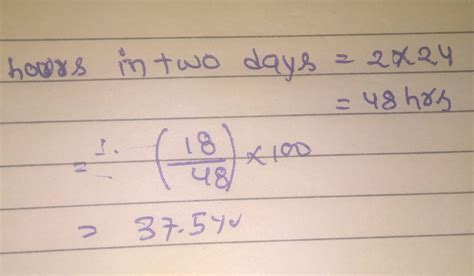 hours in two days = 2×24
= 48 hrs
= %. (18/48) × 100
= 37.5%